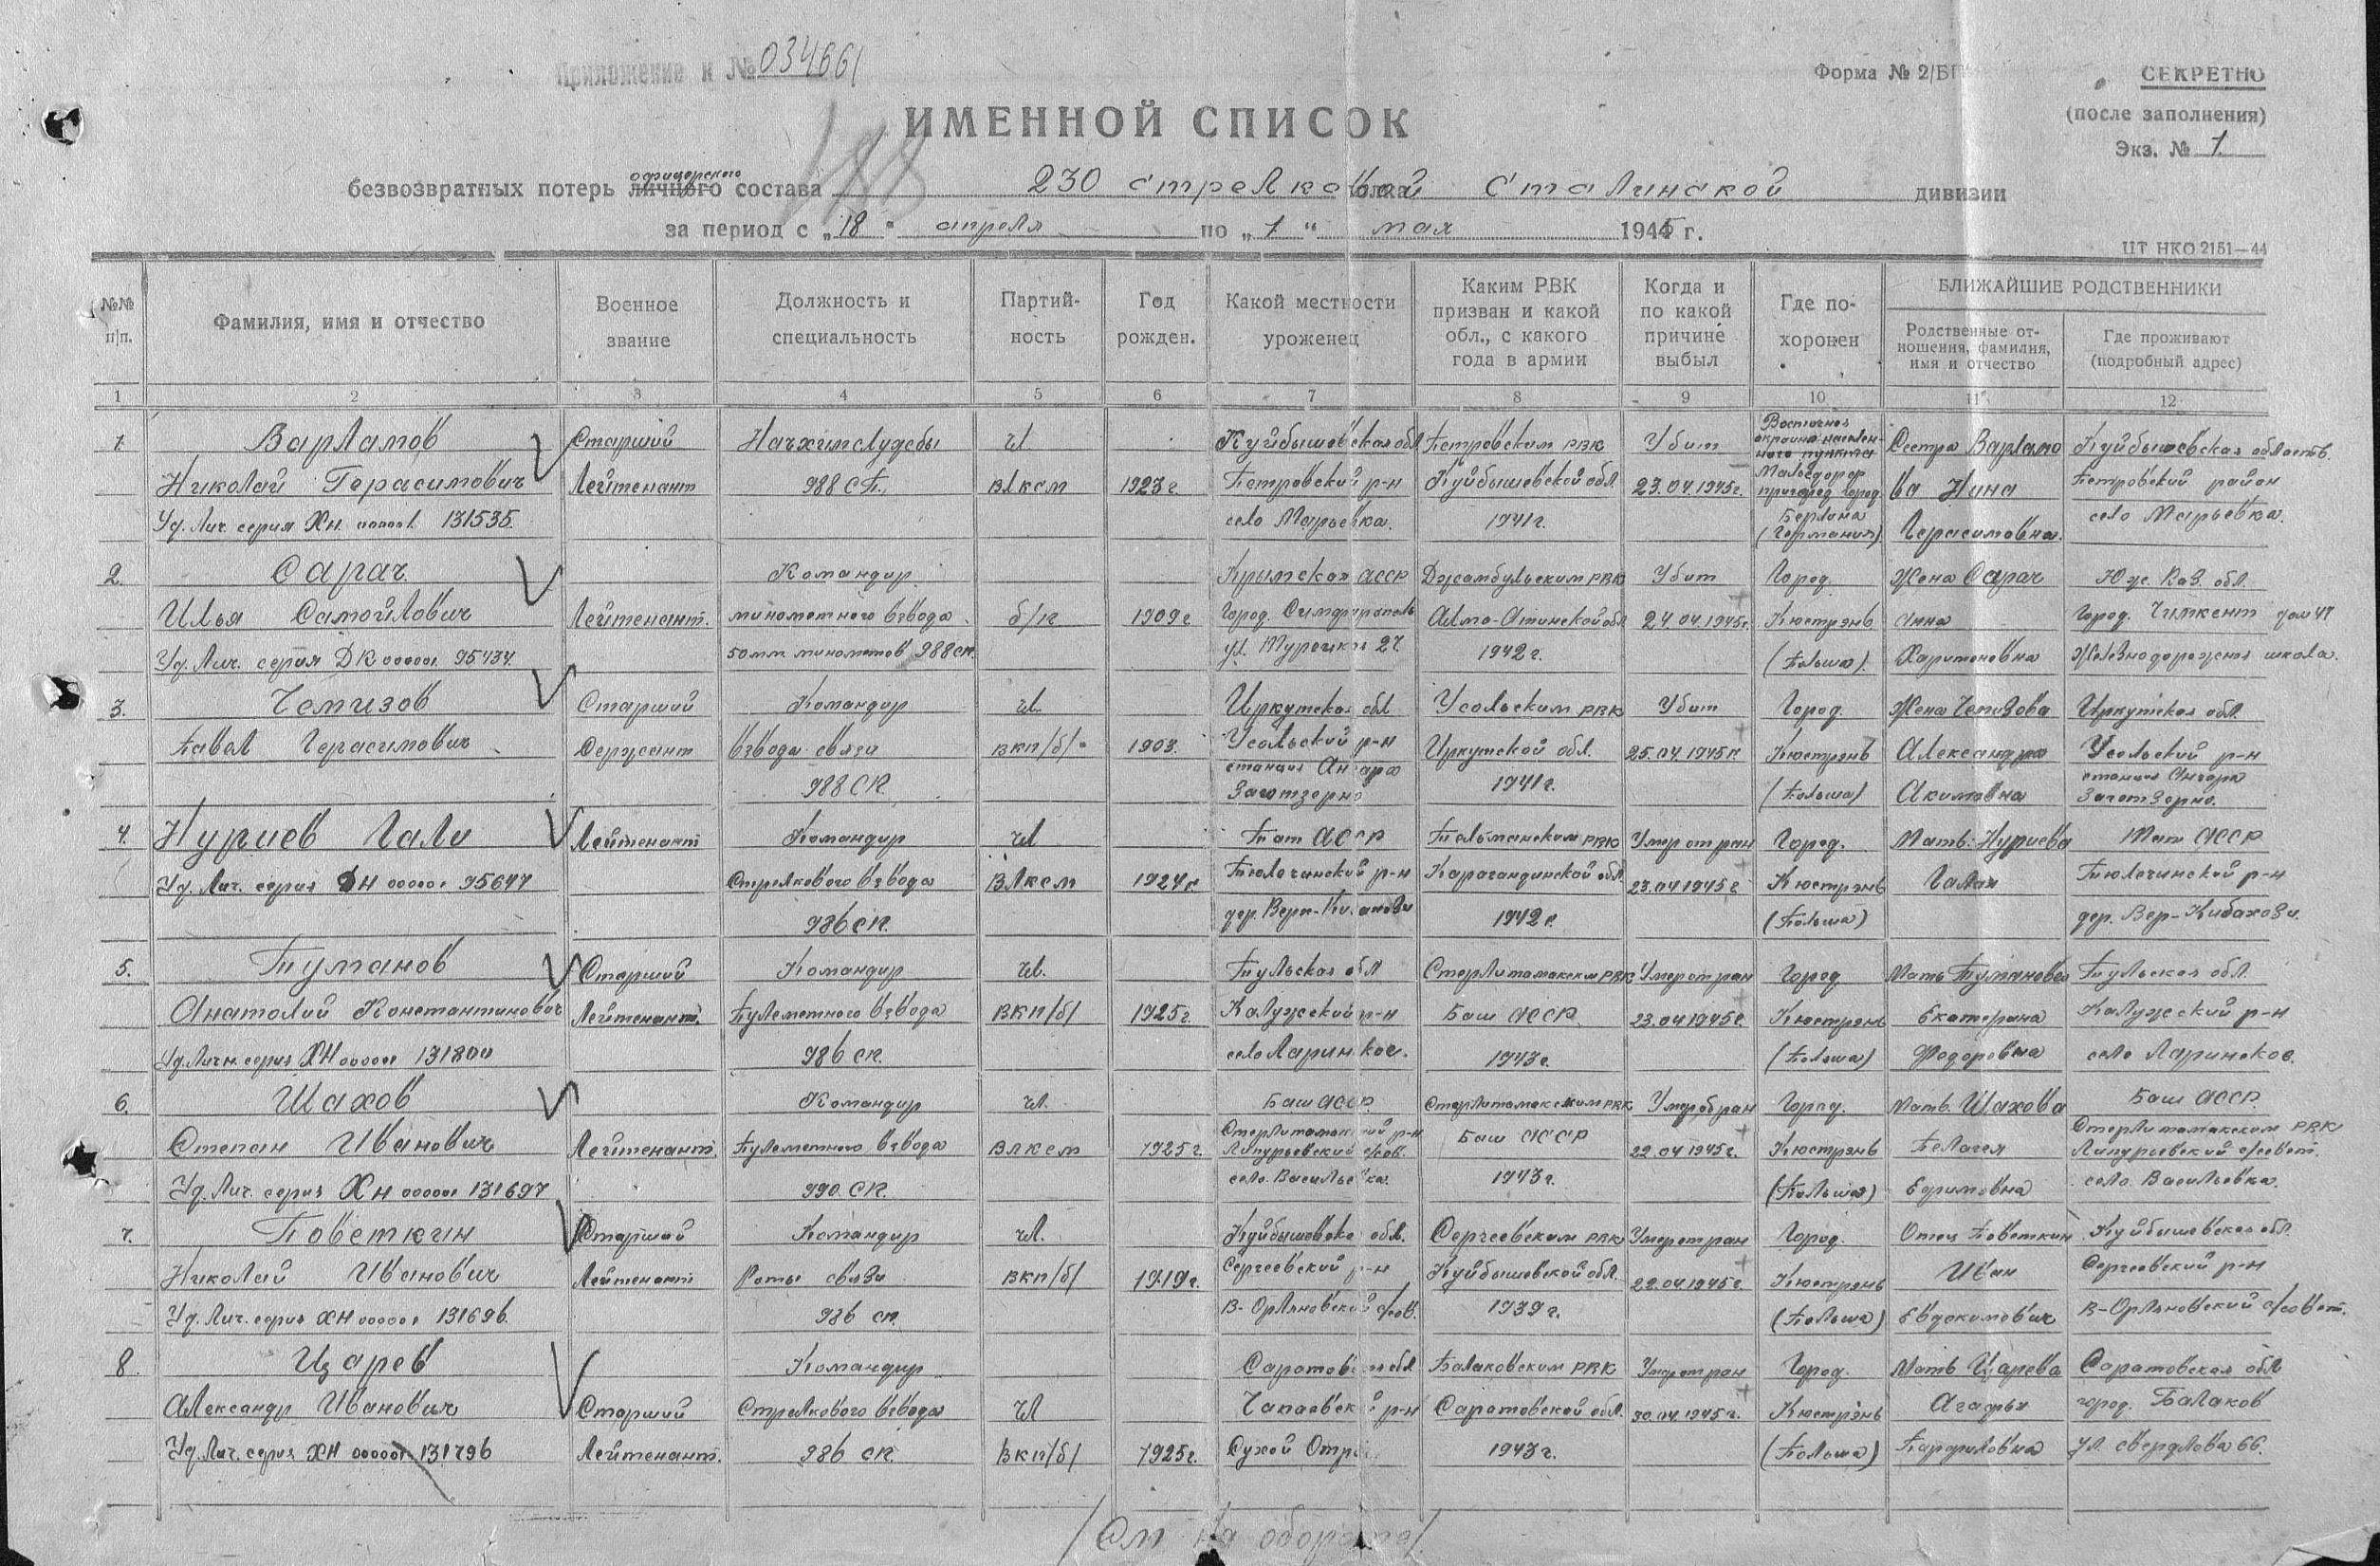 Приложение к № 034661
Форма № 2/БП
СЕКРЕТНО
(после заполнения)
Экз. № 1
ИМЕННОЙ СПИСОК
188
безвозвратных потерь личного офицерского состава 230 стрелковой Сталинской дивизии
за период с „18" апреля по „1" мая 1945 г.
ЦТ НКО 2151—44
№№ п/п.
Фамилия, имя и отчество
Военное звание
Должность и специальность
Партий-ность
Год рожден.
Какой местности уроженец
Каким РВК призван и какой обл., с какого года в армии
Когда и по какой причине выбыл
Где по-хоронен
БЛИЖАЙШИЕ РОДСТВЕННИКИ
Родственные от-ношения, фамилия, имя и отчество
Где проживают (подробный адрес)
1 2 3 4 5 6 7 8 9 10 11 12
1. Варламов Старший Начхимслужбы чл. Куйбышевская обл Петровским РВК Убит Восточная окраина населен-ного пункта Сестра Варламо Куйбышевская область.
Николай Герасимович Лейтенант 988 СП. ВЛКСМ 1923 г. Петровский р-н Куйбышевской обл. 23.04.1945г. Мальсдорф пригород город ва Нина Петровский район
Уд. Лич. серия ХН 000001 131535. село Марьевка. 1941 г. Берлина (Германия) Герасимовна. село Марьевка.
2. Сарач Командир Крымская АССР Джамбульским РВК Убит Город. Жена Сарач Юж. Каз. обл.
Илья Самойлович Лейтенант. минометного взвода б/п 1909 г Город. Симферополь Алма-Атинской обл 24.04.1945г. Кюстрэнь Анна город. Чимкент дом 47
Уд. Лич. серия ДК 000001 95434. 50мм минометов 988 сп. ул. Турецкая 27. 1942 г. (Польша). Харитоновна Железнодорожная школа.
3. Чемизов Старший Командир чл. Иркутская обл Усольским РВК Убит Город. Жена Чемизова Иркутская обл.
Павел Герасимович Сержант взвода связи ВКП/б/ 1903. Усольский р-н Иркутской обл. 25.04.1945г. Кюстрэнь Александра Усольский р-н
988 СП. станция Ангара Заготзерно 1941 г. (Польша) Акимовна станция Ангара Заготзерно.
4. Нуриев Гали Лейтенант Командир чл Тат АССР Тельманским РВК Умер от ран Город. Мать: Нуриева Тат АССР
Уд. Лич. серия ДН 00000 95647 Стрелкового взвода ВЛКСМ 1924 г Тюлячинский р-н Карагандинской обл. 23.04.1945 г. Кюстрэнь Галия Тюлячинский р-н
986 СП. дер. Верх- 1942 г. (Польша) дер. Вер-Кибахози.
5. Туманов Старший Командир чл. Тульская обл Стерлитамакским РВК Умер от ран Город Мать Туманова Тульская обл.
Анатолий Константинович Лейтенант. Пулеметного взвода ВКП/б/ 1925 г. Калужский р-н Баш АССР 23.04.1945г. Кюстрэнь Екатерина Калужский р-н
Уд. Личн. серия ХН 00000 131800 986 СП. село Ларинское. 1943 г. (Польша) Федоровна село Ларинское.
6. Шахов Командир чл. Баш АССР. Стерлитамакским РВК Умер от ран Город. Мать. Шахова Баш АССР.
Степан Иванович Лейтенант. Пулеметного взвода ВЛКСМ 1925 г. Стерлитамакский р-н Баш АССР 22.04.1945г. Кюстрэнь Пелагея Стерлитамакским РВК
Уд. Лич. серия ХН 00000 131697 990 СП. село Васильевка. 1943 г. (Польша) Ефимовна село Васильевка.
7. Поветкин Старший Командир чл. Куйбышевская обл. Сергеевским РВК Умер от ран Город. Отец Поветкин Куйбышевская обл.
Николай Иванович Лейтенант Роты связи ВКП/б/ 1919 г. Сергеевский р-н Куйбышевской обл. 22.04.1945г. Кюстрэнь Иван Сергеевский р-н
Уд. Лич. серия ХН 00000 131696. 986 СП В-Орляновский с/сов. 1939 г. (Польша) Евдокимович В-Орляновский с/совет.
8. Царев Командир Саратовская обл Балаковским РВК Умер от ран Город. Мать Царева Саратовская обл
Александр Иванович Старший Стрелкового взвода чл Чапаевский р-н Саратовской обл. 30.04.1945г. Кюстрэнь Агафья город. Балаков
Уд. Лич. серия ХН 00000 131796 Лейтенант. 986 СП. ВКП/б/ 1925 г. Сухой Отрог 1943 г. (Польша) Парфиловна ул. Свердлова 66.
/См на обороте/